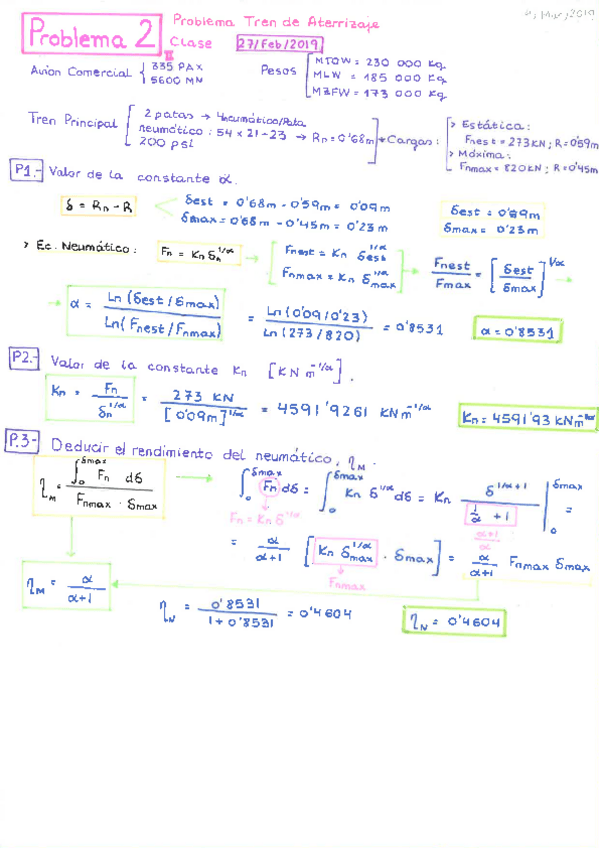 Problema 2
Problema Tren de Aterrizaje
Clase 27/Feb/2019
Mar/2019
Avion Comercial { 335 PAX
5600 MN
Pesos [ MTOW = 230 000 Kg.
MLW = 185 000 Kg.
MZFW = 173 000 Kg
Tren Principal [ 2 patas → 4neumático/Pata
neumático: 54 x 21-23 → Rn = 0'68m
200 psi
* Cargas: > Estática:
Fnest = 273KN; R=0'59m
> Máxima:
Fnmax = 820KN; R=0'45m
P1.- Valor de la constante α.
δ = Rn - R
δest = 0'68m - 0'59m = 0'09m
δmax = 0'68m - 0'45m = 0'23m
δest = 0'09m
δmax = 0'23m
> Ec. Neumático: Fn = Kn δn^1/α → [ Fnest = Kn δest^1/α
Fnmax = Kn δmax^1/α ] → Fnest/Fmax = [ δest/δmax ]^1/α →
→ α = Ln (δest/δmax) / Ln (Fnest/Fnmax) = Ln (0'09/0'23) / Ln (273/820) = 0'8531 α = 0'8531
P2.- Valor de la constante Kn [KN m^-1/α].
Kn = Fn / δn^1/α = 273 KN / [0'09m]^1/α = 4591'9261 KN m^-1/α Kn = 4591'93 KN m^-1/α
P.3- Deducir el rendimiento del neumático, ηM.
ηM = ∫₀^δmax Fn dδ / Fnmax · δmax → ∫₀^δmax Fn dδ = ∫₀^δmax Kn δ^1/α dδ = Kn δ^1/α+1 / (1/α + 1) |₀^δmax =
Fn = Kn δ^1/α
α+1/α
= α/α+1 [ Kn δmax^1/α · δmax ] = α/α+1 Fnmax δmax
Fnmax
ηM = α/α+1
ηN = 0'8531 / 1+0'8531 = 0'4604 ηN = 0'4604